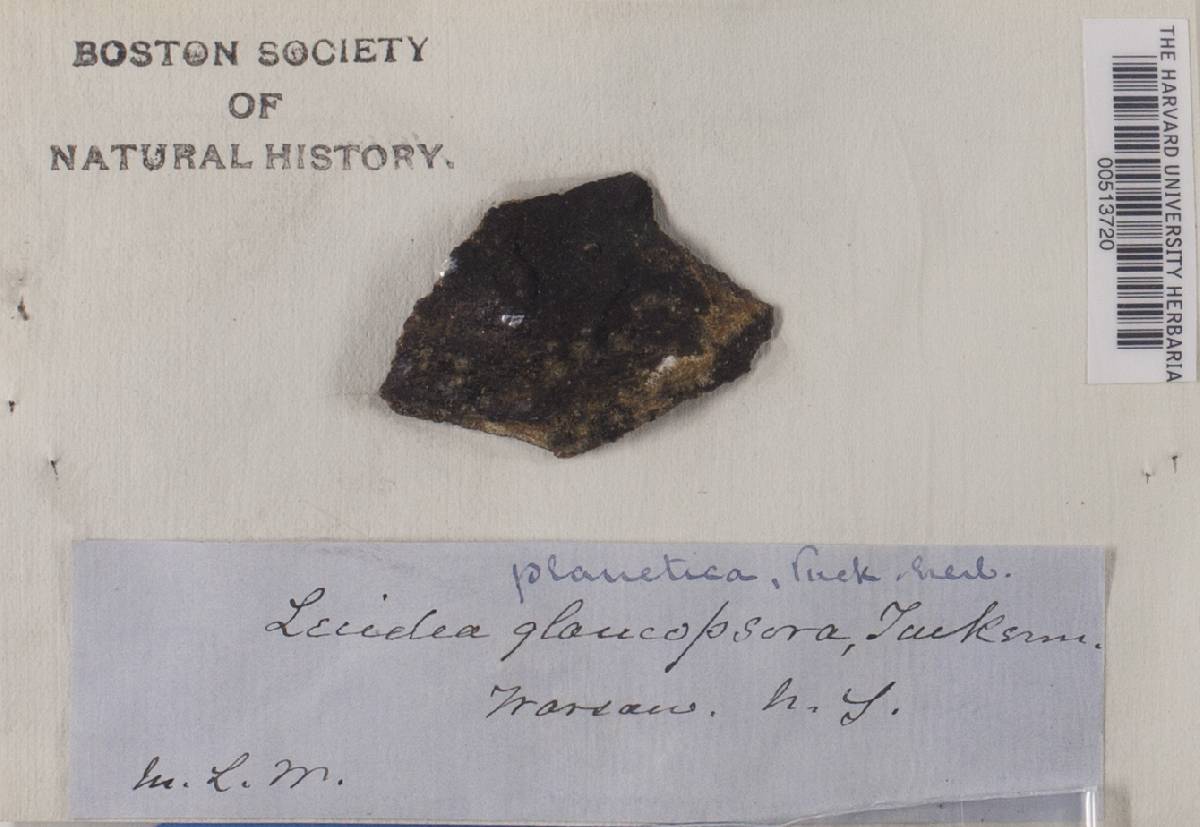 BOSTON SOCIETY
OF
NATURAL HISTORY.
THE HARVARD UNIVERSITY HERBARIA
00513720
planetica, Tuck. herb.
Lecidea glaucopsora, Tuckerm.
Warsaw. N. Y.
M. L. M.